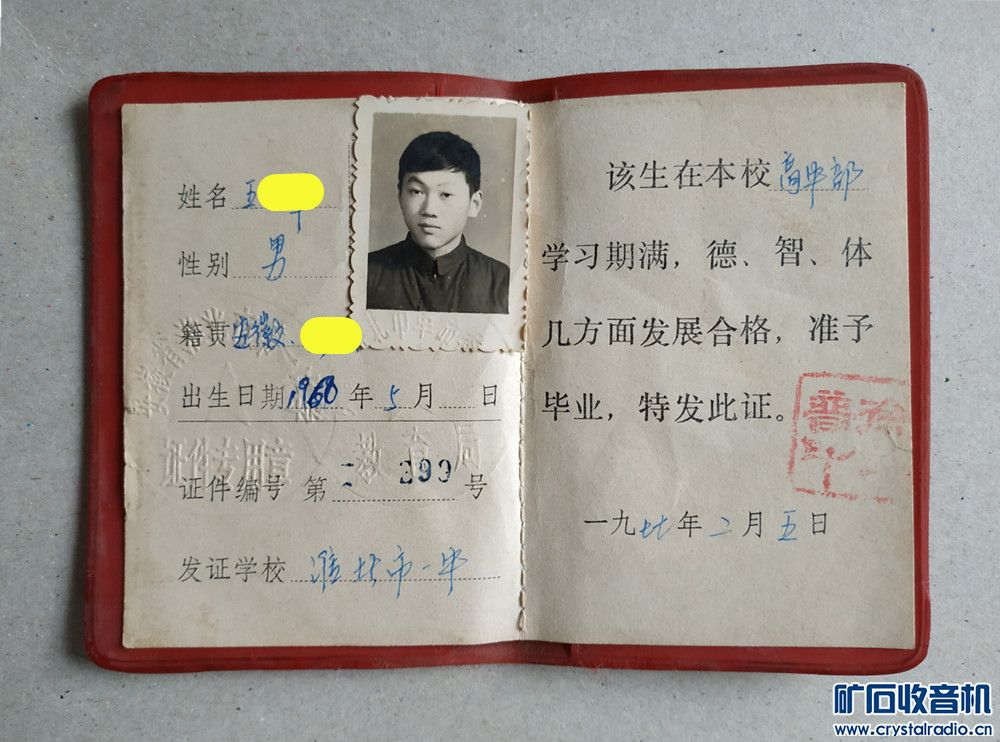 姓名 王
性别 男
籍贯 安徽
出生日期 1960 年 5 月 日
证件专用章
教育局
证件编号 第 299 号
发证学校 淮北市一中
该生在本校高中部
学习期满，德、智、体
几方面发展合格，准予
毕业，特发此证。
一九七七年二月五日
矿石收音机
www.crystalradio.cn